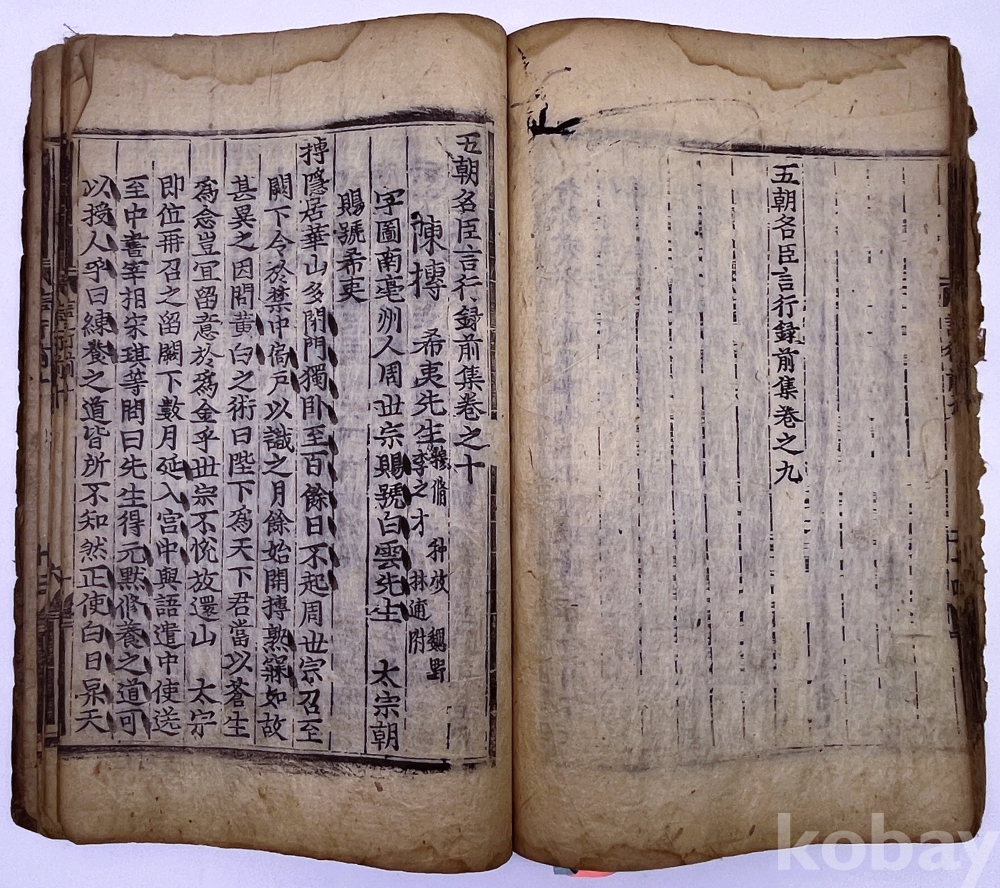 五朝名臣言行録前集卷之九
五朝名臣言行録前集卷之十
陳摶 希夷先生 穆脩 种放 魏野 李之才 林逋附
字圖南亳州人周世宗賜號白雲先生 太宗朝
賜號希夷
摶隱居華山多閉門獨卧至百餘日不起周世宗召至
闕下令於禁中扃戶以識之月餘始開摶熟寐如故
甚異之因問黄白之術曰陛下爲天下君當以蒼生
爲念豈宜留意於爲金乎世宗不悅放還山 太宗
即位再召之留闕下數月延入宫中與語遣中使送
至中書宰相宋琪等問曰先生得元默修養之道可
以授人乎曰練養之道皆所不知然正使白日昇天
kobay